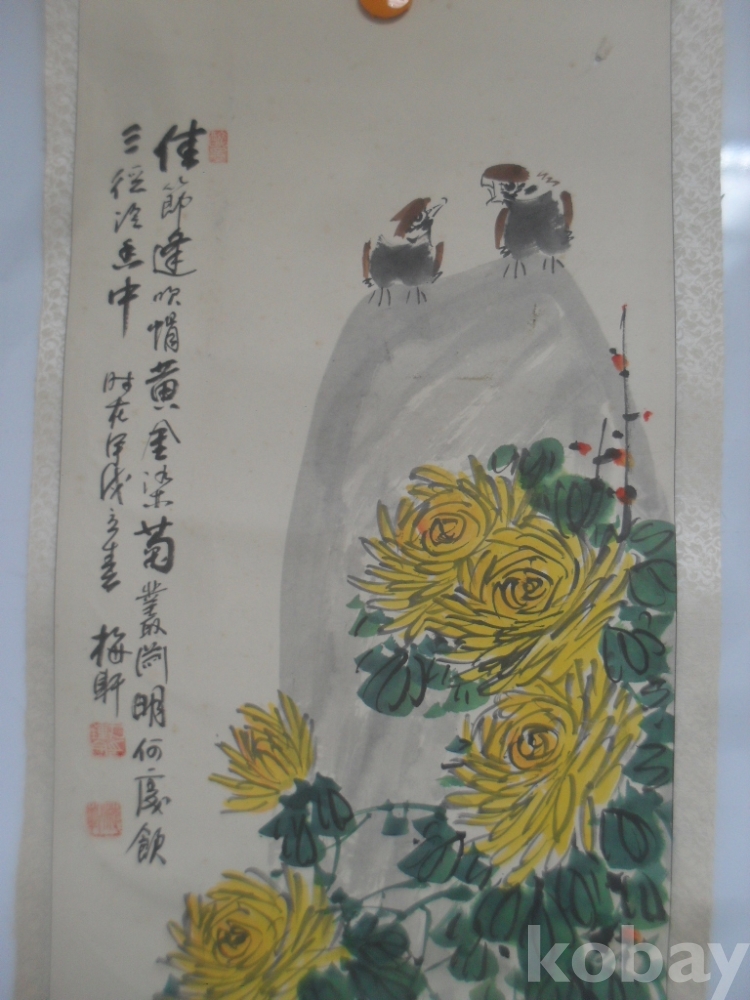 佳節逢吹帽黃金染菊叢淵明何處飲
三徑冷香中
時在甲戌立春
梅軒
kobay